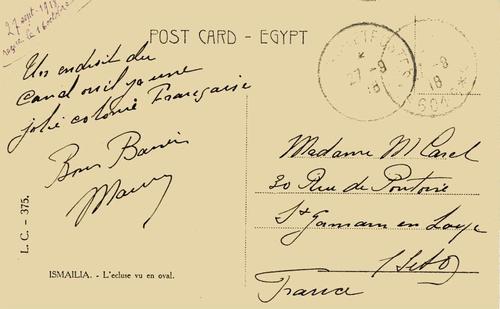 27 sept 1918
reçue le 16 octobre
POST CARD - EGYPT
27-9
18
-9
18
504
Un endroit du
Canal où il y a une
jolie colonie Française
Bons Baisers
L. C. - 375.
ISMAILIA. - L'ecluse vu en oval.
Madame M Carel
30 Rue de Pontoise
St Germain en Laye
(S et O)
France